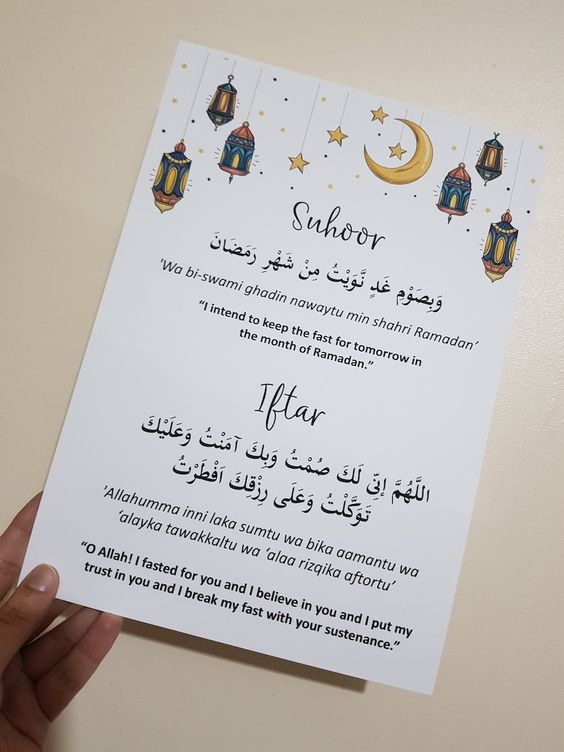 Suhoor
وَبِصَوْمِ غَدٍ نَّوَيْتُ مِنْ شَهْرِ رَمَضَانَ
'Wa bi-swami ghadin nawaytu min shahri Ramadan'
“I intend to keep the fast for tomorrow in
the month of Ramadan.”
Iftar
اللَّهُمَّ إِنِّى لَكَ صُمْتُ وَبِكَ آمَنْتُ وَعَلَيْكَ
تَوَكَّلْتُ وَعَلَى رِزْقِكَ اَفْطَرْتُ
'Allahumma inni laka sumtu wa bika aamantu wa
‘alayka tawakkaltu wa ‘alaa rizqika aftortu’
“O Allah! I fasted for you and I believe in you and I put my
trust in you and I break my fast with your sustenance.”